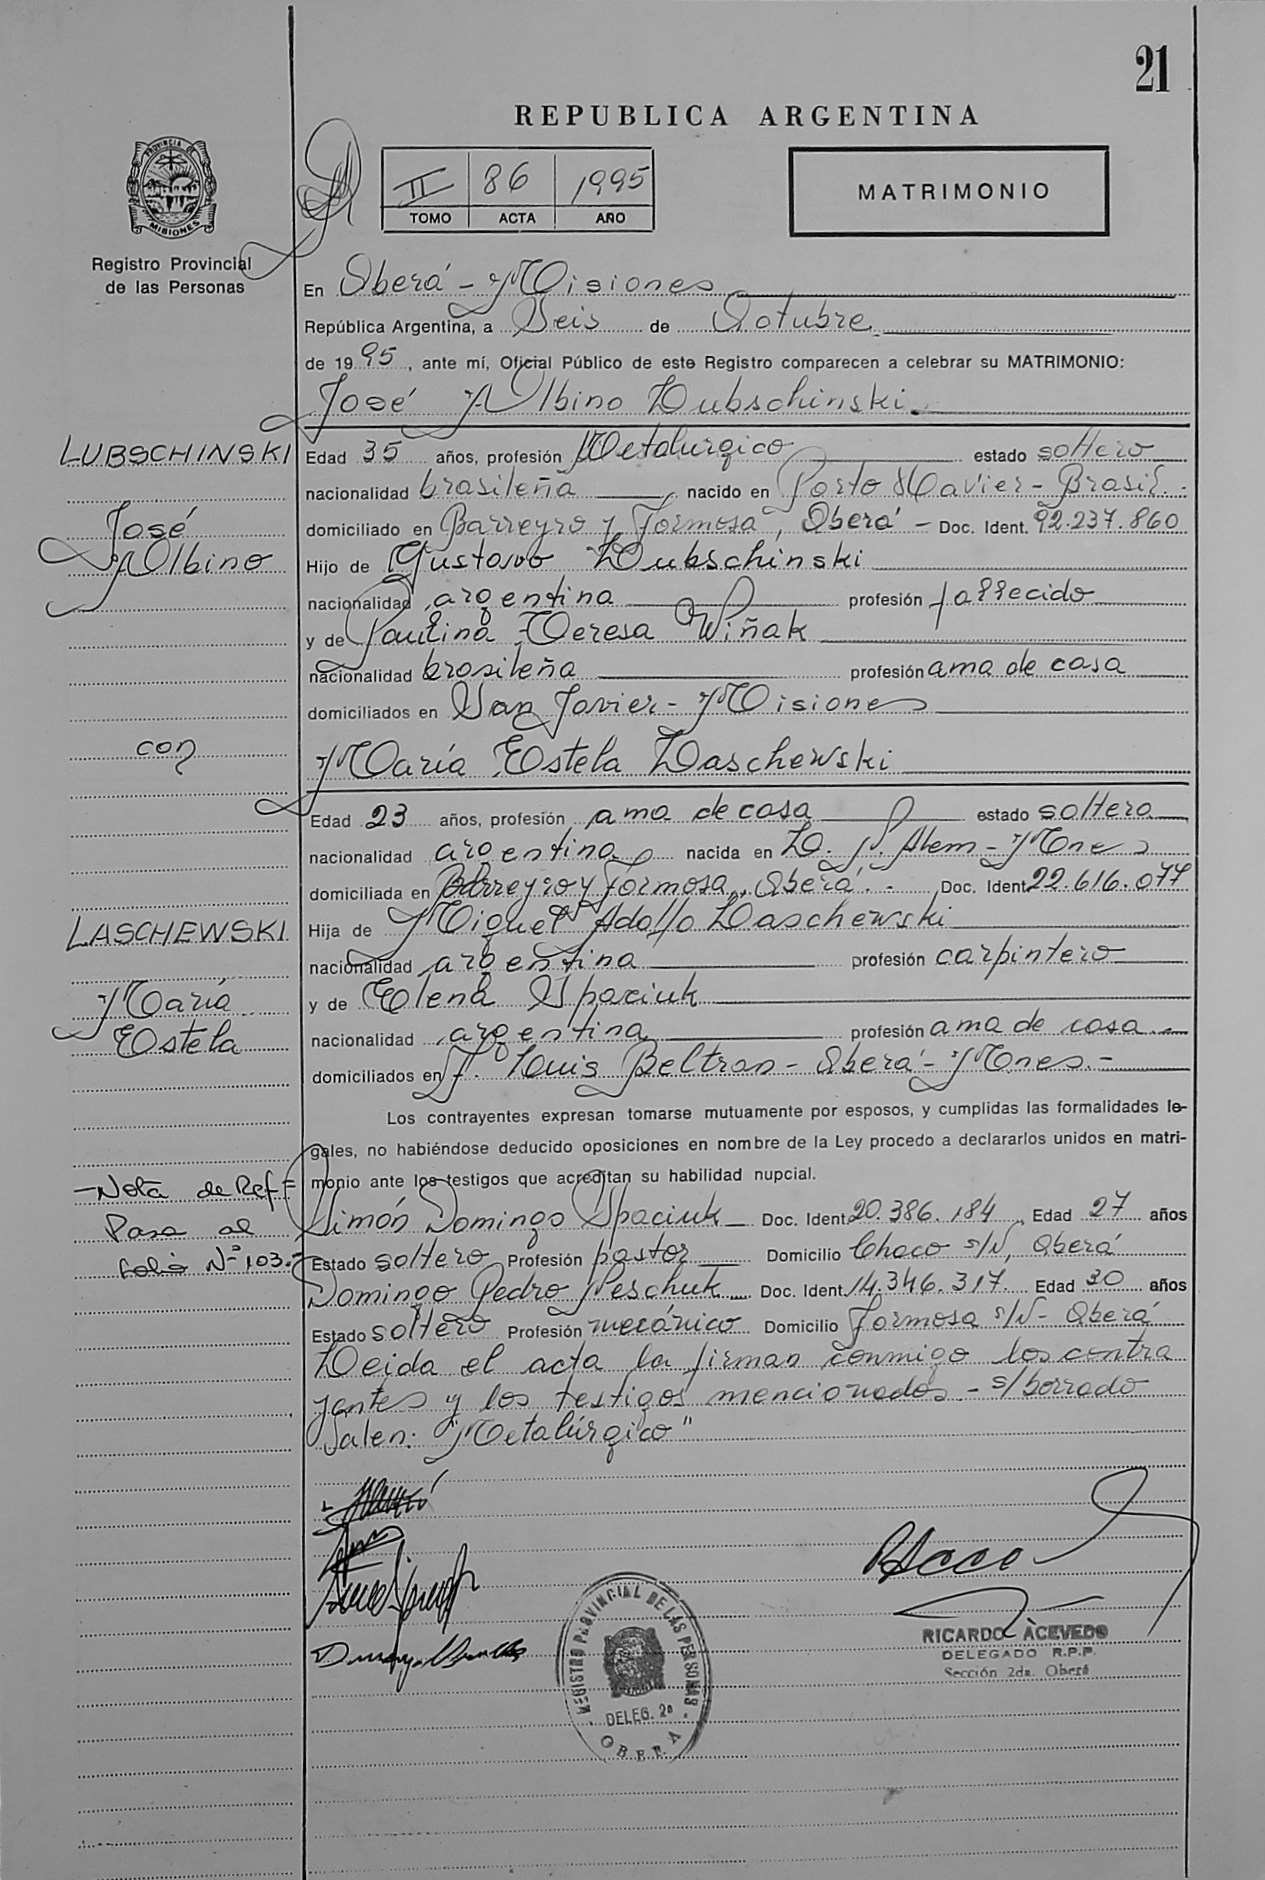 21
REPUBLICA ARGENTINA
PROVINCIA DE
MISIONES
Registro Provincial
de las Personas
II 86 1995
TOMO ACTA AÑO
MATRIMONIO
En Oberá - Misiones
República Argentina, a Seis de Octubre
de 1995, ante mí, Oficial Público de este Registro comparecen a celebrar su MATRIMONIO:
José Albino Lubschinski.
LUBSCHINSKI
José
Albino
Edad 35 años, profesión Metalurgico estado soltero
nacionalidad brasileña, nacido en Porto Xavier - Brasil.-
domiciliado en Barreyro y Formosa, Oberá - Doc. Ident. 92.237.860
Hijo de Gustavo Lubschinski
nacionalidad argentina profesión fallecido
y de Paulina Teresa Wiñak
nacionalidad brasileña profesión ama de casa
domiciliados en San Javier - Misiones
con
María Estela Laschewski
Edad 23 años, profesión ama de casa estado soltera
nacionalidad argentina nacida en L. N. Alem - Mnes
domiciliada en Barreyro y Formosa, Oberá.- Doc. Ident 22.616.077
LASCHEWSKI
María
Estela
Hija de Miguel Adolfo Laschewski
nacionalidad argentina profesión carpintero
y de Elena Spaciuk
nacionalidad argentina profesión ama de casa.
domiciliados en F. Luis Beltran - Oberá - Mnes.-
Los contrayentes expresan tomarse mutuamente por esposos, y cumplidas las formalidades le-
gales, no habiéndose deducido oposiciones en nombre de la Ley procedo a declararlos unidos en matri-
monio ante los testigos que acreditan su habilidad nupcial.
-Nota de Ref=
Pasa al
folio Nº 103.-
Simón Domingo Spaciuk Doc. Ident 20.386.184 Edad 27 años
Estado soltero Profesión pastor Domicilio Chaco s/N, Oberá
Domingo Pedro Peschuk Doc. Ident 14.346.317. Edad 30 años
Estado soltero Profesión mecánico Domicilio Formosa s/N - Oberá
Leida el acta la firman conmigo los contra
yentes y los testigos mencionados - s/borrado
Valen: "Metalúrgico"
RICARDO ACEVEDO
DELEGADO R.P.P.
Sección 2da. Oberá
REGISTRO PROVINCIAL DE LAS PERSONAS
DELEG. 2ª
OBERA